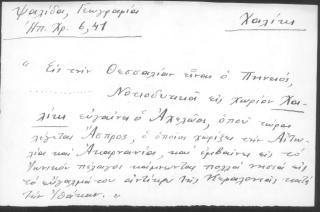 Ψαλίδα, Γεωγραφία
Ηπ. Χρ. 6, 41
Χαλίκι
" Εις την Θεσσαλίαν είναι ο Πηνειός,
.......... Νοτιοδυτικά εις χωρίον Χα-
λίκι ευγαίνει ο Αχελώος, οπού τώρα
λέγεται Άσπρος, ο οποίος χωρίζει την Αιτω-
λία και Ακαρνανία, και εμβαίνει εις το
Ιωνικόν πέλαγος και γίνωνται πολλά νησιά εις
το εύγαλμά του αντίκρυ της Κεφαλονιάς κατά
την Ιθάκην. "